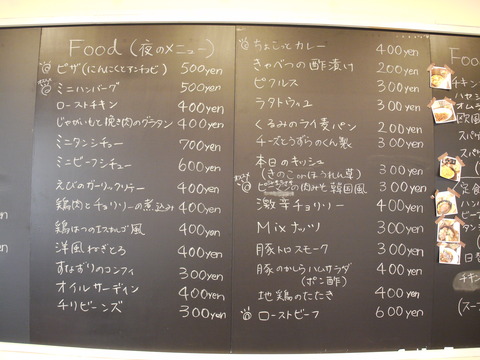 Food (夜のメニュー)
ピザ(にんにくとアンチョビ) 500yen
ミニハンバーグ 500yen
ローストチキン 400yen
じゃがいもと挽き肉のグラタン 400yen
ミニタンシチュー 700yen
ミニビーフシチュー 600yen
えびのガーリックソテー 400yen
鶏肉とチョリソーの煮込み 400yen
鶏はつのエスカルゴ風 400yen
洋風ねぎとろ 400yen
すなずりのコンフィ 300yen
オイルサーディン 400yen
チリビーンズ 300yen
ちょこっとカレー 400yen
きゃべつの酢漬け 200yen
ピクルス 300yen
ラタトゥユ 300yen
くるみのライ麦パン 200yen
チーズとうずらのくん製 300yen
本日のキッシュ
(きのこorほうれん草) 300yen
の肉みそ韓国風 300yen
激辛チョリソー 400yen
Mixナッツ 300yen
豚トロスモーク 300yen
豚のかしらハムサラダ 400yen
(ポン酢)
地鶏のたたき 400yen
ローストビーフ 600yen
Foo
チキン
ハヤシ
オムラ
欧風
スパゲ
スパ
定食
ハンバ
ビーフ
タンシ
日替
チキン
(スープ